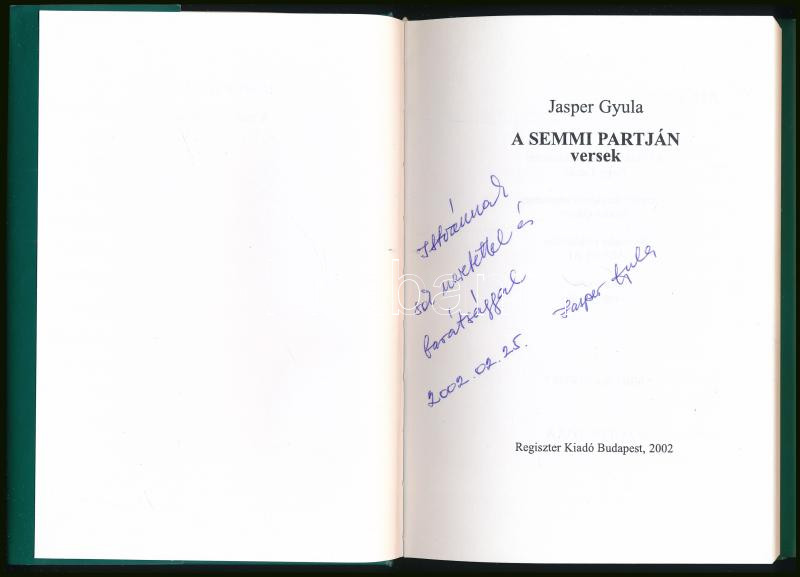 Jasper Gyula
A SEMMI PARTJÁN
versek
Istvánnak
szeretettel és
barátsággal
2002.02.25.
Jasper Gyula
Regiszter Kiadó Budapest, 2002